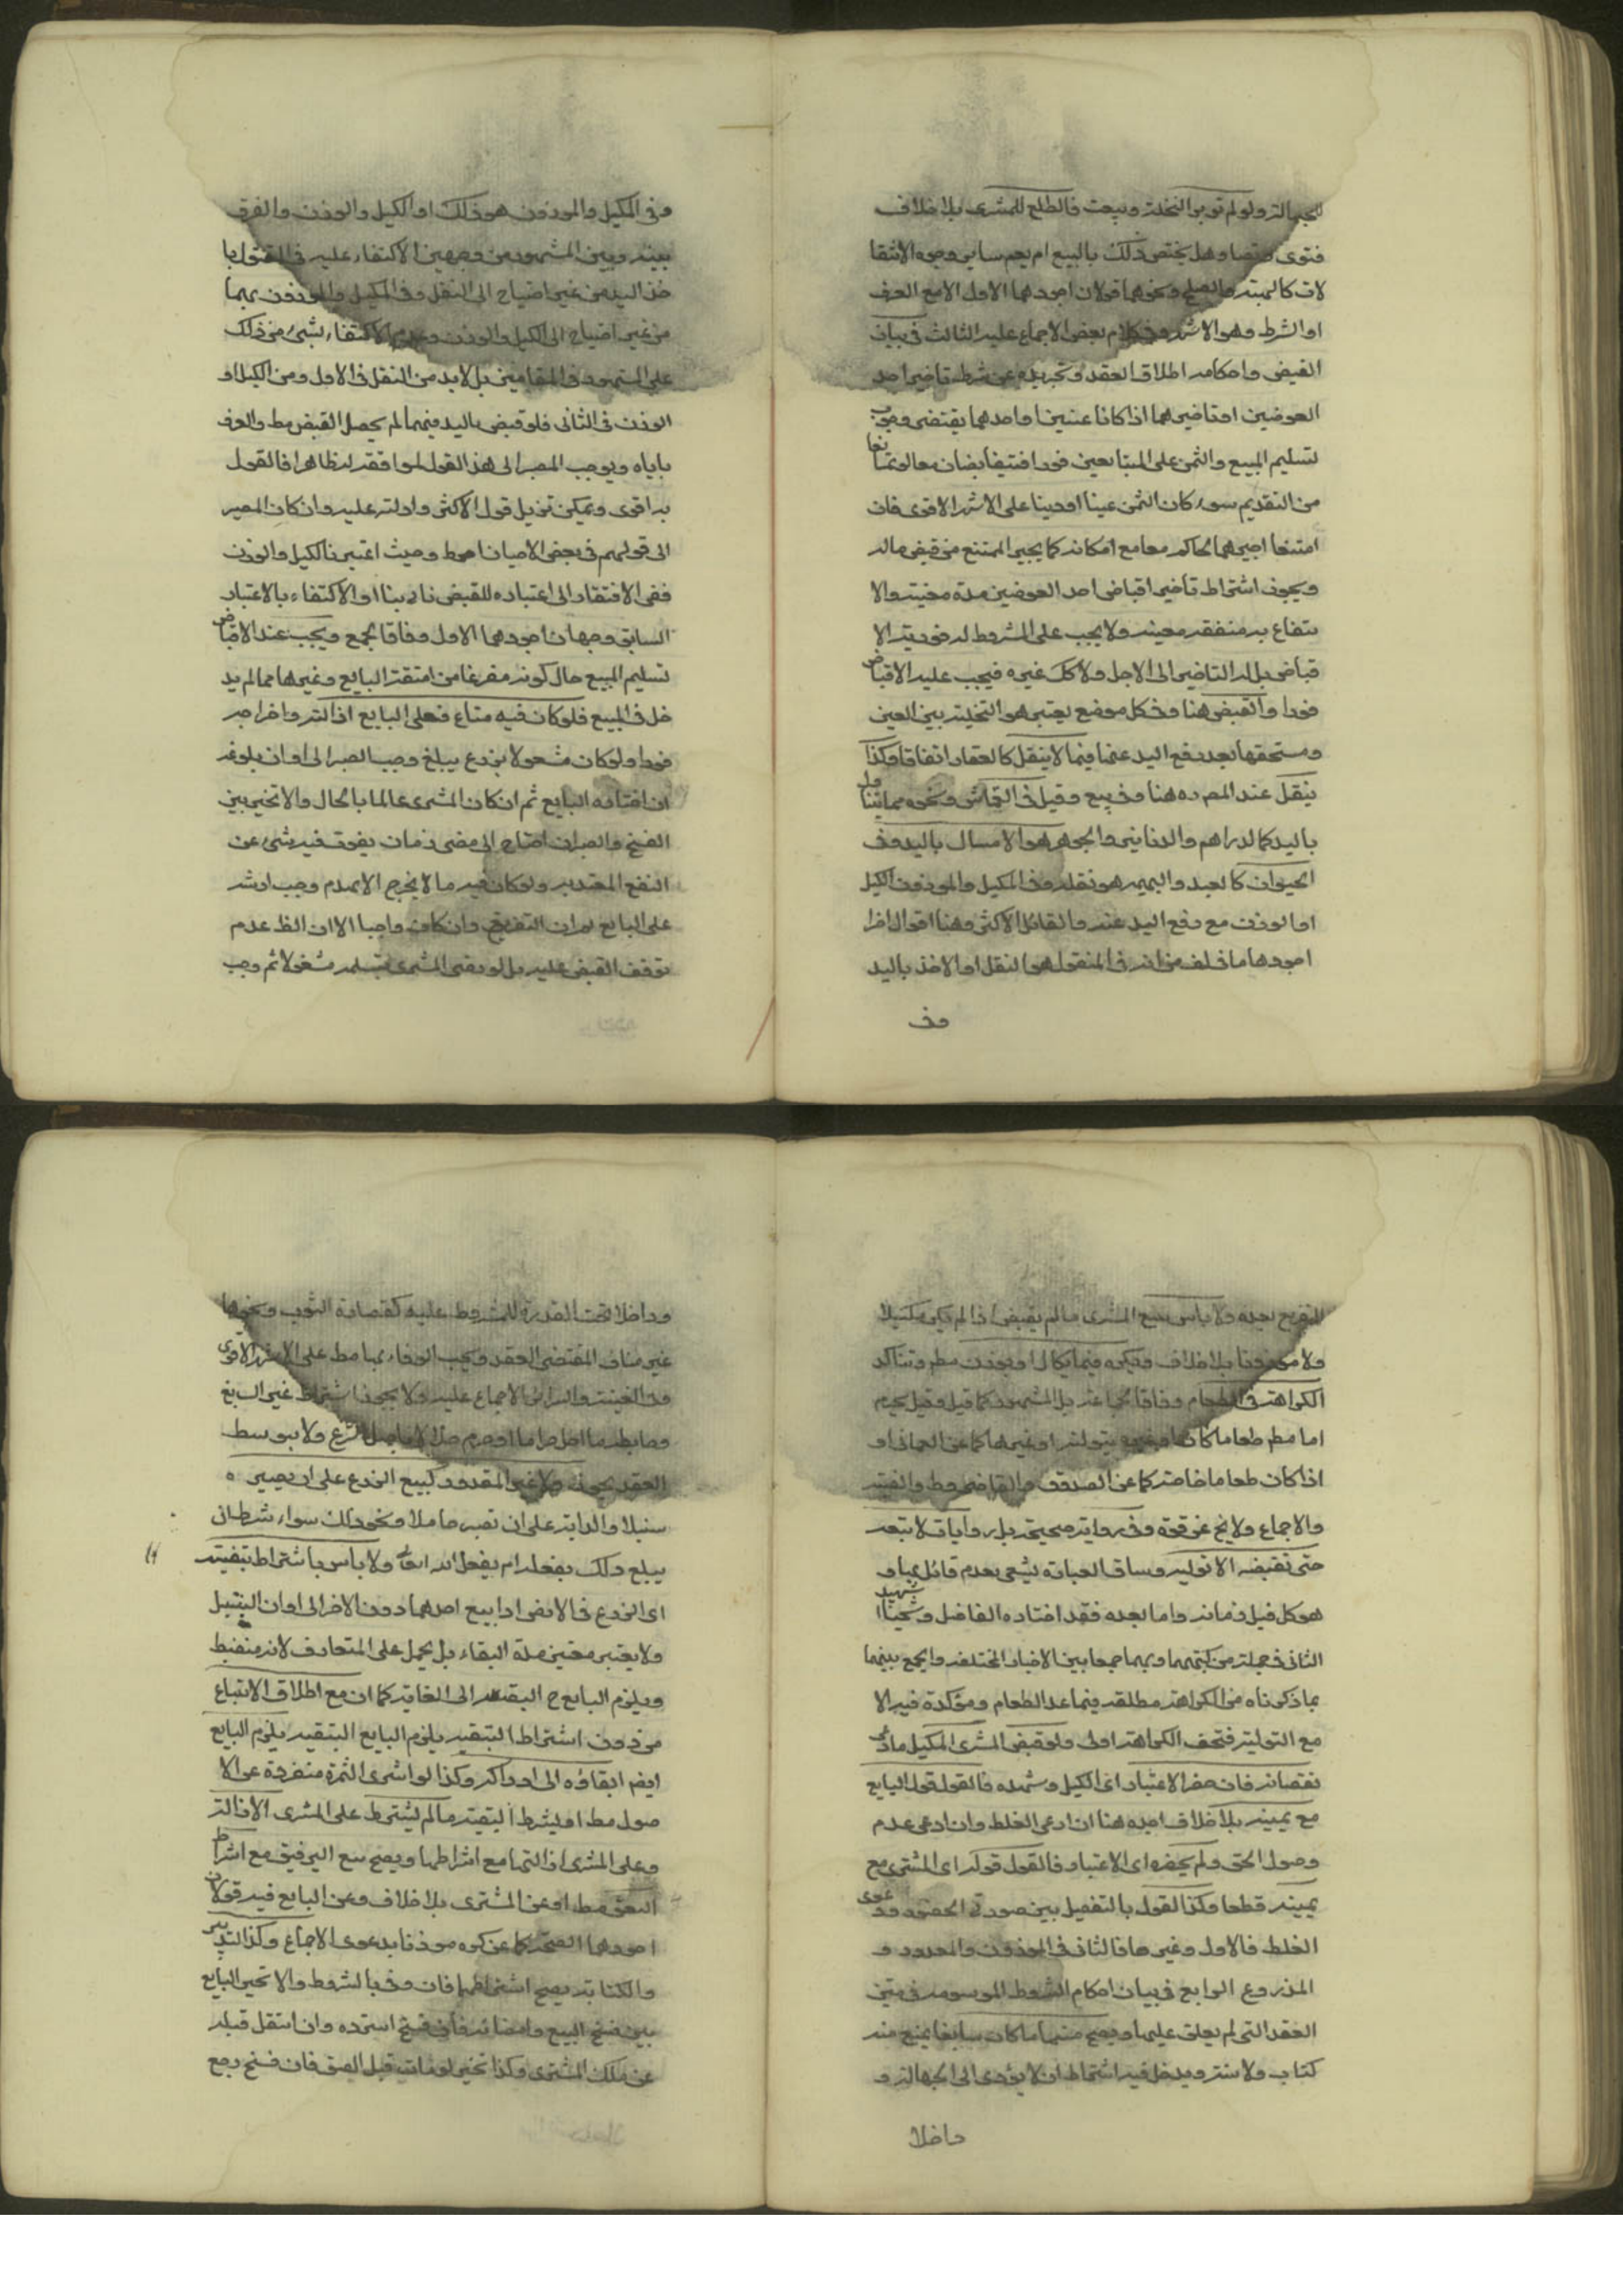 للجهالة ولو لم توبر النخلة وبيعت فالطلع للمشتري بلا خلاف
فتوى ونصا وهل يختص ذلك بالبيع ام يعم ساير وجوه الانتقا
لات كالهبة والصلح ونحوهما قولان اجودهما الاول الا مع العرف
او الشرط وهو الاشهر وفي كلام بعض الاجماع عليه الثالث في بيان
القبض واحكامه اطلاق العقد وتجريده عن شرط تاخير احد
العوضين او تاخيرهما اذا كانا عينين او احدهما يقتضي وجوب
تسليم المبيع والثمن على المتبايعين فورا فيتقابضان معا لو تمانعا
من التقديم سواء كان الثمن عينا او دينا على الاشهر الاقوى فان
امتنعا اجبرهما الحاكم معا مع امكانه كما يجبر الممتنع من قبض ماله
ويجوز اشتراط تاخير اقباض احد العوضين مدة معينة والا
نتفاع به منفعة معينة ولا يجب على المشروط له فورية الا
قباض بل له التاخير الى الاجل ولا كك غيره فيجب عليه الاقباض
فورا والقبض هنا وفي كل موضع يعتبر هو التخلية بين العين
ومستحقها بعد رفع اليد عنها فيما لا ينقل كالعقار اتفاقا وكذا
ينقل عند المص ره هنا وفي بيع وقيل في القماش ونحوه مما يتناول
باليد كالدراهم والدنانير والجوهر هو الامساك باليد وفي
الحيوان كالعبد والبهيمة هو نقله وفي المكيل والموزون الكيل
او الوزن مع رفع اليد عنه والقائل الاكثر وهنا اقوال اخر
اجودها ما في لف من انه في المنقول هو النقل او الاخذ باليد
وفي
وفي المكيل والموزون هو ذلك او الكيل والوزن والفرق
بينه وبين المشهور من وجهين الاكتفاء عليه في المنقول با
خذ اليد من غير احتياج الى النقل وفي المكيل والموزون بهما
من غير احتياج الى الكيل والوزن وعدم الاكتفاء بشيء من ذلك
على المشهور في المقامين بل لابد من النقل في الاول ومن الكيل او
الوزن في الثاني فلو قبض باليد فيهما لم يحصل القبض مط والعرف
ياباه ويوجب المصير الى هذا القول لموافقته له ظاهرا فالقول
به اقوى ويمكن تنزيل قول الاكثر وادلته عليه وان كان المصير
الى قولهم في بعض الاحيان احوط وحيث اعتبرنا الكيل والوزن
ففي الافتقار الى اعتباره للقبض ثانيا او الاكتفاء بالاعتبار
السابق وجهان اجودهما الاول وفاقا لجمع ويجب عند الاقباض
تسليم المبيع حال كونه مفرغا من امتعة البايع وغيرها مما لم يد
خل في المبيع فلو كان فيه متاع فعلى البايع ازالته واخراجه
فورا ولو كان مشغولا بزرع يبلغ وجب الصبر الى اوان بلوغه
ان اختاره البايع ثم ان كان المشتري عالما بالحال والا تخير بين
الفسخ والصبر ان احتاج الى مضي زمان يفوت فيه شيء من
النفع المعتد به ولو كان فيه ما لا يخرج الا بهدم وجب ارشه
على البايع ثم ان التفريغ وان كان واجبا الا ان الظ عدم
توقف القبض عليه بل لو رضي المشتري بتسلمه مشغولا تم وجب
التفريغ بعده ولا باس ببيع المشتري ما لم يقبض اذا لم يكن مكيلا
ولا موزونا بلا خلاف ويكره فيما يكال او يوزن مطم وتتاكد
الكراهة في الطعام وفاقا لجماعة بل المشهور كما قيل وقيل يحرم
اما مطم طعاما كان او غيره بتولية او غيرها كما عن العماني او
اذا كان طعاما خاصة كما عن الصدوق والقاضي وط والغنية
والاجماع ولا يخ عن قوة وفي رواية صحيحة بل روايات لا تبعه
حتى تقبضه الا توليه وساق العبارة يشعر بعدم قائل بها و
هو كك قبل زمانه واما بعده فقد اختاره الفاضل وشيخنا الشهيد
الثاني في جملة من كتبهما وبهما جمعا بين الاخبار المختلفة والجمع بينهما
بما ذكرناه من الكراهة مطلقة فيما عد الطعام ومؤكدة فيه الا
مع التولية فتخف الكراهة اولى ولو قبض المشتري المكيل وادعى
نقصانه فان حضر الاعتبار اي الكيل وشهده فالقول قول البايع
مع يمينه بلا خلاف اجده هنا ان ادعى الغلط وان ادعى عدم
وصول الحق ولم يحضره اي الاعتبار فالقول قوله اي المشتري مع
يمينه قطعا وكذا القول بالتفصيل بين صورتي الحضور ودعوى
الغلط فالاول وغيرها فالثاني في الموزون والمعدود و
المذروع الرابع في بيان احكام الشروط المرسومة في متن
العقد التي لم يعلق عليها ويصح منها ما كان سايغا لم يمنع منه
كتاب ولا سنة ويدخل فيه اشتراط ان لا يؤدى الى الجهالة و
داخلا
وداخلا تحت القدرة للمشروط عليه كقصارة الثوب ونحوها
غير مناف لمقتضى العقد ويجب الوفاء بها مط على الاشهر الاقوى
وفي الغنية والسرائر الاجماع عليه ولا يجوز اشتراط غير السايغ
وضابطه ما احل حراما او حرم حلالا باصل الشرع ولا بتوسط
العقد يجوز ولا غير المقدور كبيع الزرع على ان يصيره
سنبلا والدابة على ان تصير حاملا ونحو ذلك سواء شرط ان
يبلغ ذلك بفعله ام بفعل الله تعالى ولا باس باشتراط تبقيته
اي الزرع في الارض اذا بيع احدهما دون الاخر الى اوان السنبل
ولا يعتبر تعيين مدة البقاء بل يحمل على المتعارف لانه منضبط
ويلزم البايع ح التبقية الى الغاية كما ان مع اطلاق الابتياع
من دون اشتراط التبقية يلزم البايع التبقية يلزم البايع
ايضم ابقاؤه الى ادراكه وكذا لو اشترى الثمرة منفردة عن الا
صول مط او بشرط التبقية ما لم يشترط على المشتري الازالة
وعلى المشتري ازالتها مع اشتراطها ويصح بيع الرقيق مع اشتراط
العتق مط او عن المشتري بلا خلاف وعن البايع فيه قولان
اجودهما الصحة كما عن كره موذنا بدعوى الاجماع وكذا التدبير
والكتابة يصح اشتراطهما فان وفى بالشروط والا تخير البايع
بين فسخ البيع وامضائه فان فسخ استرده وان انتقل قبله
عن ملك المشتري وكذا تخير لو مات قبل العتق فان فسخ رجع